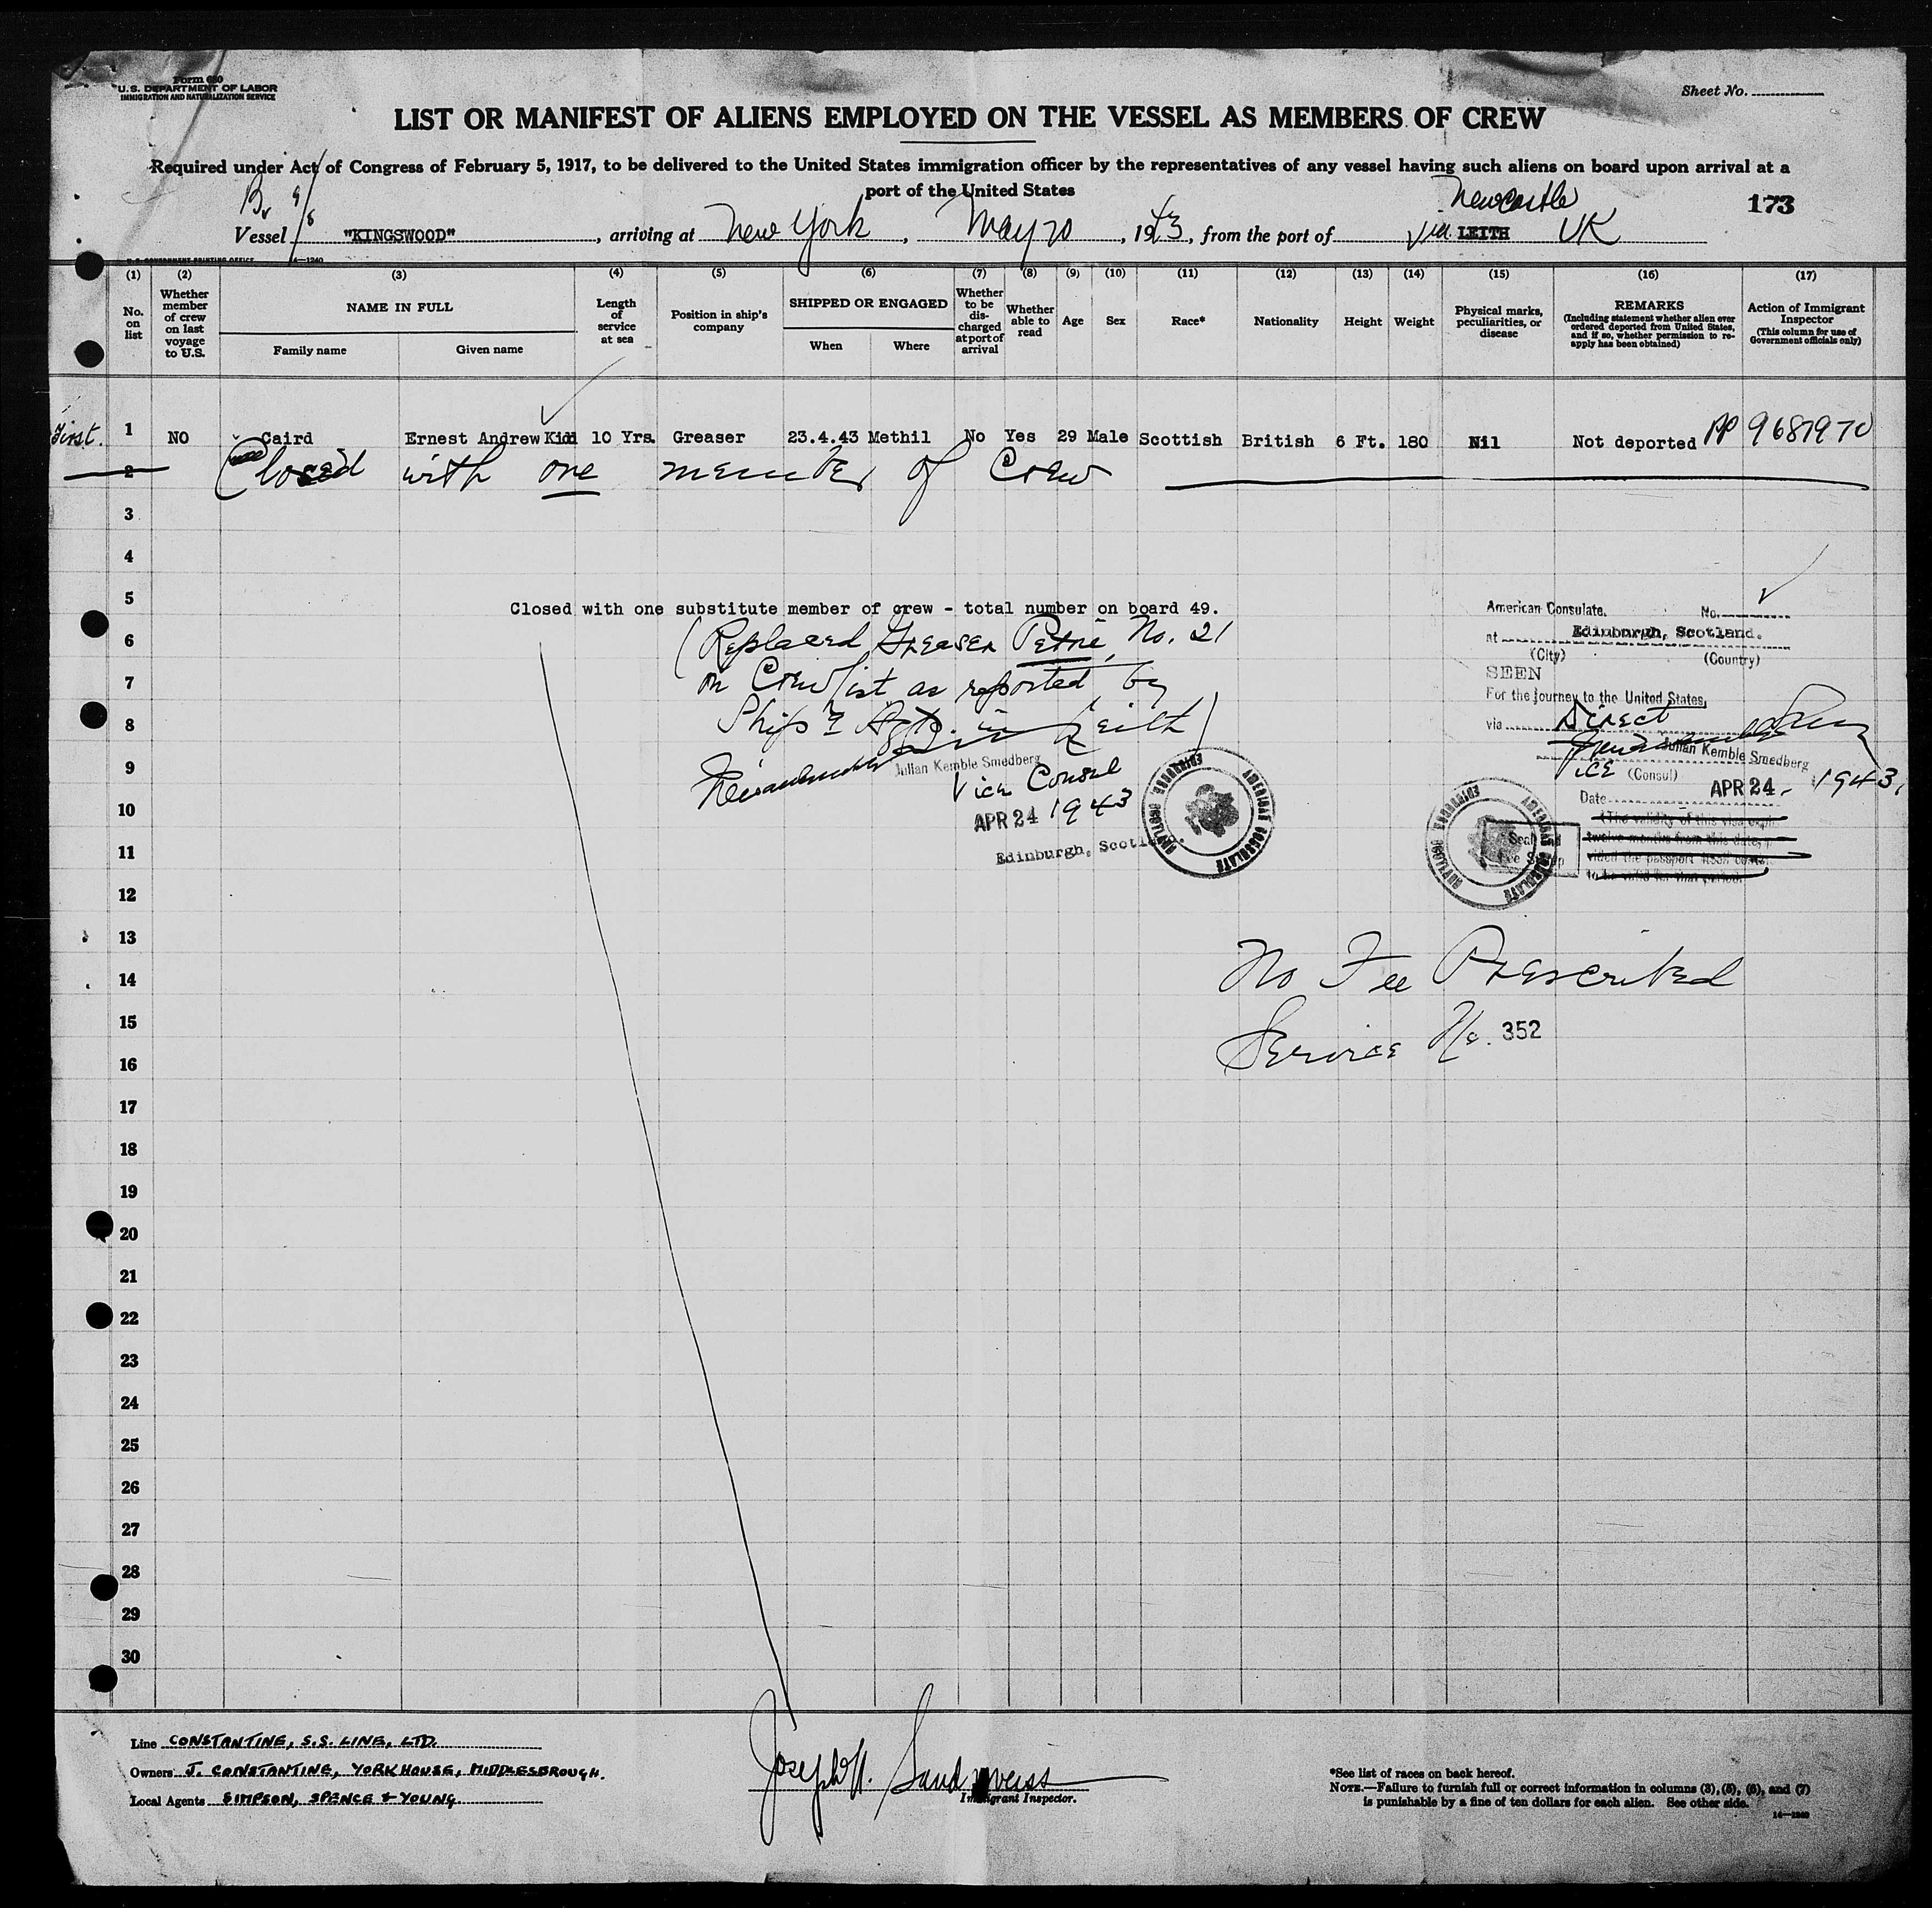 Form 680
U.S. DEPARTMENT OF LABOR
IMMIGRATION AND NATURALIZATION SERVICE
Sheet No.
LIST OR MANIFEST OF ALIENS EMPLOYED ON THE VESSEL AS MEMBERS OF CREW
Required under Act of Congress of February 5, 1917, to be delivered to the United States immigration officer by the representatives of any vessel having such aliens on board upon arrival at a
port of the United States
173
Br s/s Newcastle
Vessel "KINGSWOOD", arriving at New York, May 20, 1943, from the port of via LEITH UK
U. S. GOVERNMENT PRINTING OFFICE
(1) (2) (3) (4) (5) (6) (7) (8) (9) (10) (11) (12) (13) (14) (15) (16) (17)
No. on list
Whether member of crew on last voyage to U.S.
NAME IN FULL
Family name
Given name
Length of service at sea
Position in ship's company
SHIPPED OR ENGAGED
When
Where
Whether to be discharged at port of arrival
Whether able to read
Age
Sex
Race*
Nationality
Height
Weight
Physical marks, peculiarities, or disease
REMARKS
(Including statement whether alien ever ordered deported from United States, and if so, whether permission to re-apply has been obtained)
Action of Immigrant Inspector
(This column for use of Government officials only)
First. 1 NO Caird Ernest Andrew Kidd 10 Yrs. Greaser 23.4.43 Methil No Yes 29 Male Scottish British 6 Ft. 180 Nil Not deported PP 9687970
2 Closed with one member of Crew
3
4
5 Closed with one substitute member of crew - total number on board 49.
6 (Replaced Greaser Petrie, No. 21
7 on Crewlist as reported by
8 Ship's Agts. in Leith)
9 Julian Kemble Smedberg
Vice Consul
10 APR 24 1943
11 Edinburgh, Scotland.
12
13
14
15
16
17
18
19
20
21
22
23
24
25
26
27
28
29
30
American Consulate, No.
at Edinburgh, Scotland.
(City) (Country)
SEEN
For the journey to the United States,
via Direct
Julian Kemble Smedberg
Vice (Consul)
Date APR 24. 1943.
(The validity of this visa expires
twelve months from this date,
vided the passport itself continues
to be valid for that period.
AMERICAN CONSULATE
EDINBURGH, SCOTLAND
AMERICAN CONSULATE
EDINBURGH, SCOTLAND
No Fee Prescribed
Service No. 352
Line CONSTANTINE, S.S. LINE, LTD.
Owners J. CONSTANTINE, YORK HOUSE, MIDDLESBROUGH.
Local Agents SIMPSON, SPENCE & YOUNG
Joseph H. Sandweiss
Immigrant Inspector.
*See list of races on back hereof.
NOTE.—Failure to furnish full or correct information in columns (3), (5), (6), and (7)
is punishable by a fine of ten dollars for each alien. See other side.
14—1240